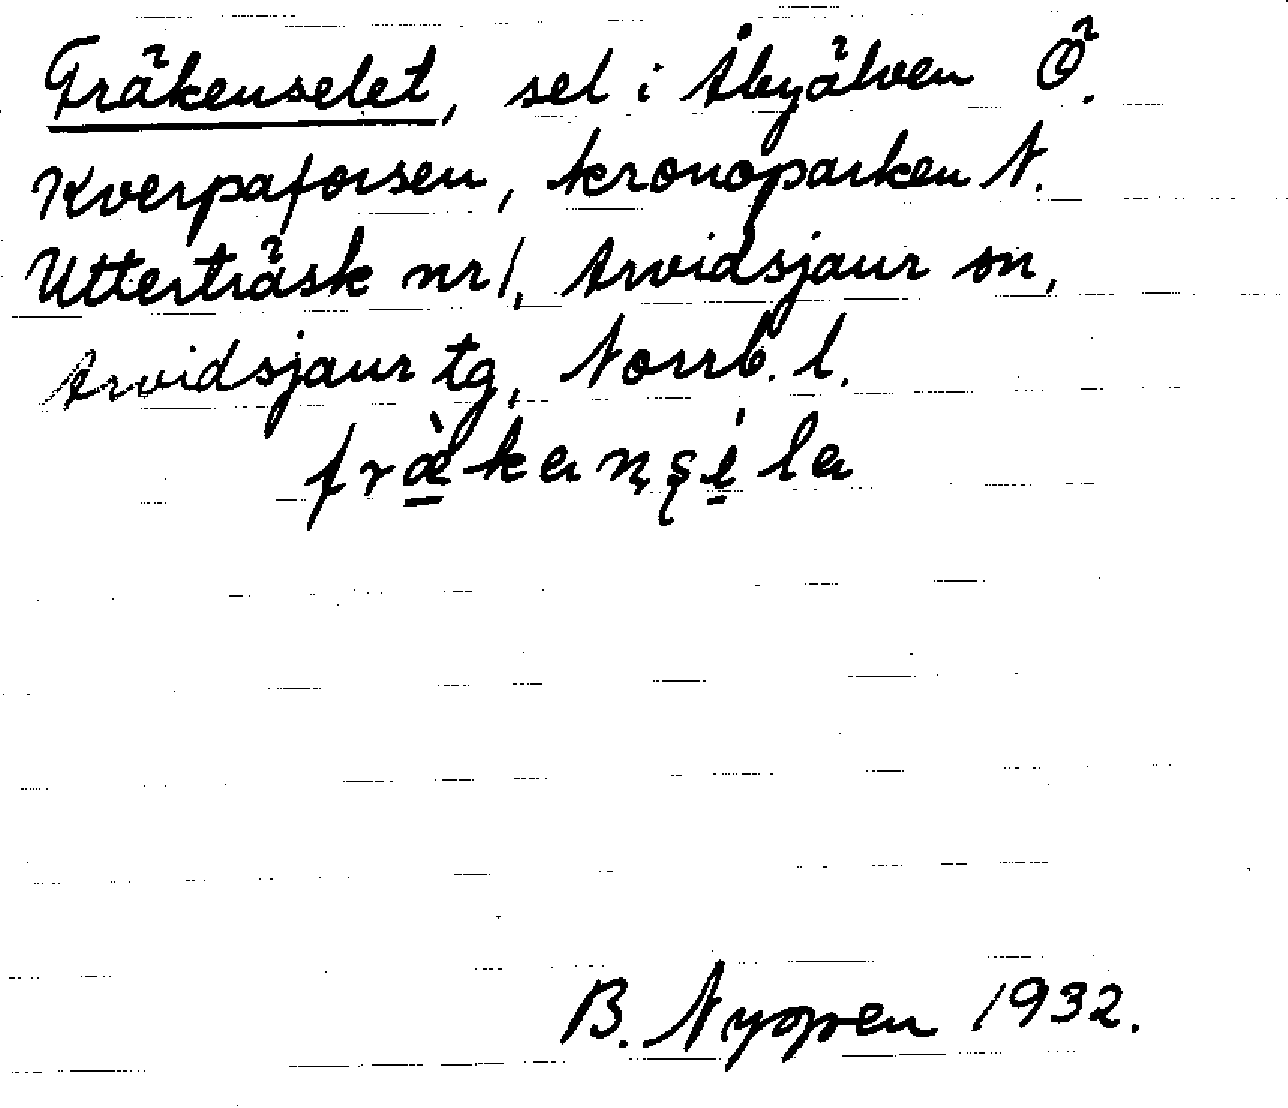 Fräkenselet, sel i Åbyälven Ö.
Kverpaforsen, kronoparken N.
Utterträsk nr 1, Arvidsjaur sn,
Arvidsjaur tg, Norrb. l.
B. Nygren 1932.